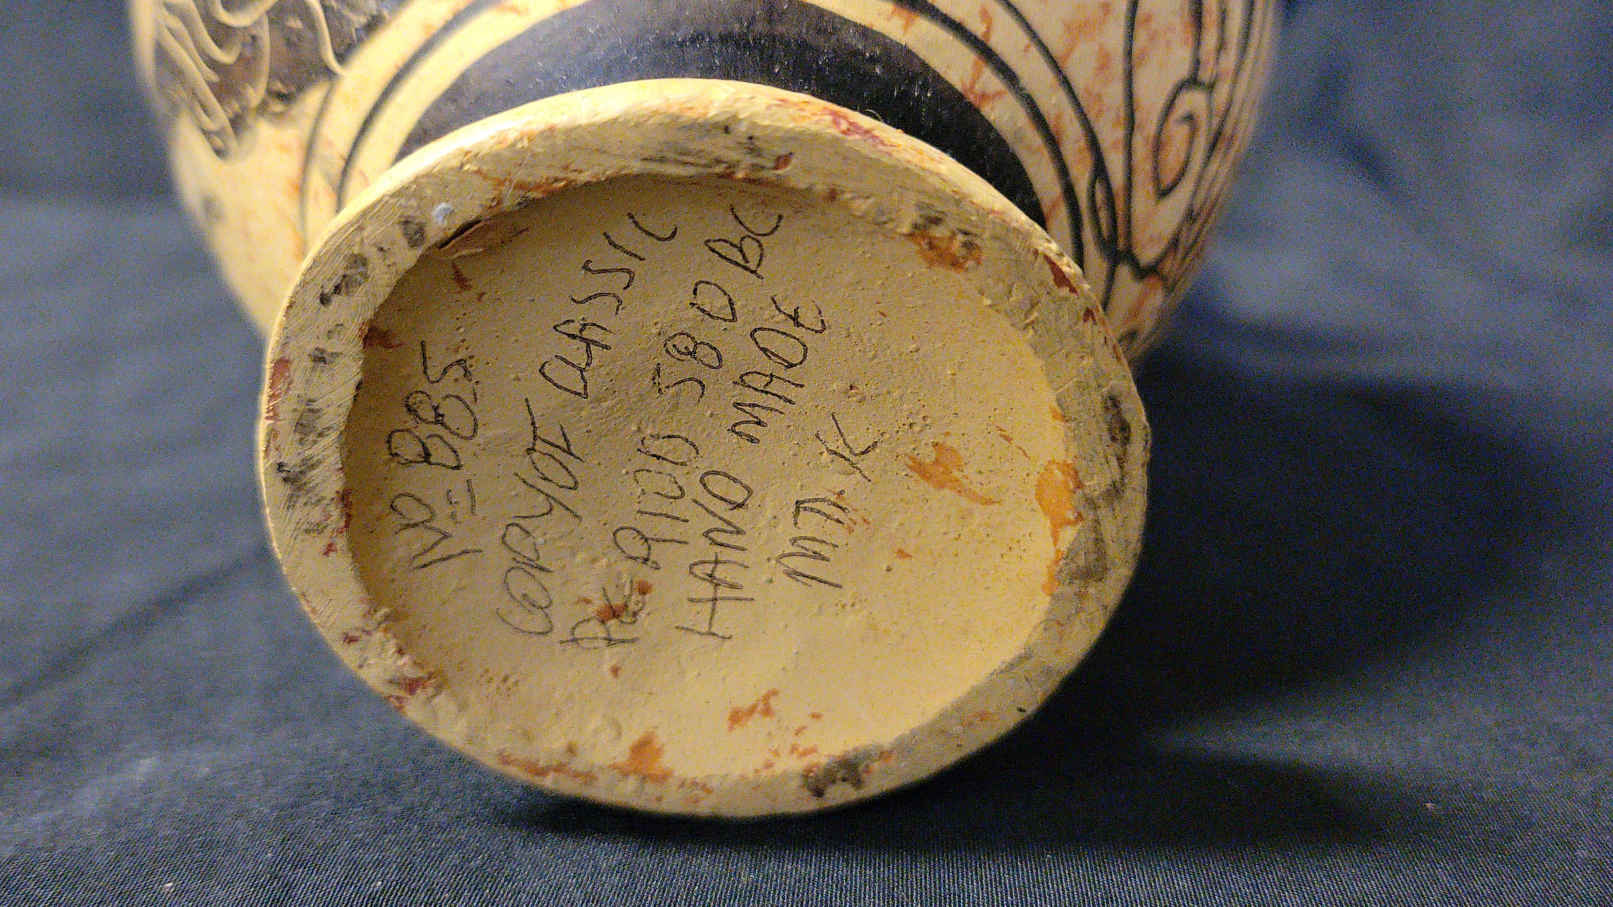 Nº B85
COPY OF CLASSIC
PERIOD 580 BC
HAND MADE
M.K